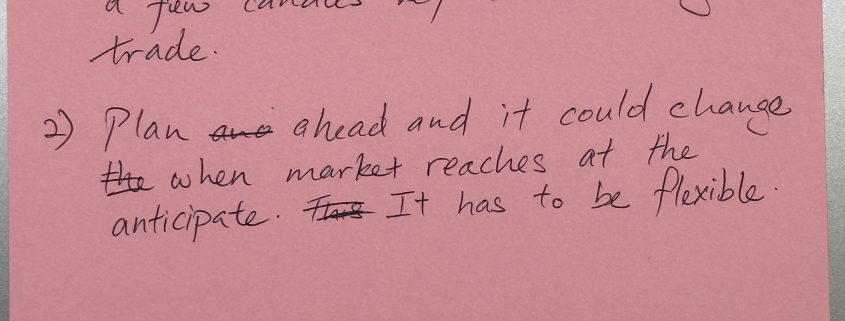 a few candles
trade.
2) Plan ahead and it could change
when market reaches at the
anticipate. It has to be flexible.